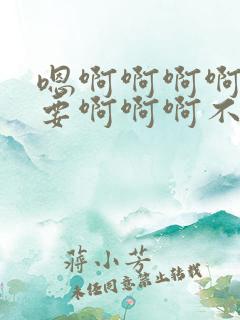 嗯啊啊啊啊
要啊啊啊不
蒋小芳
未经同意禁止转载